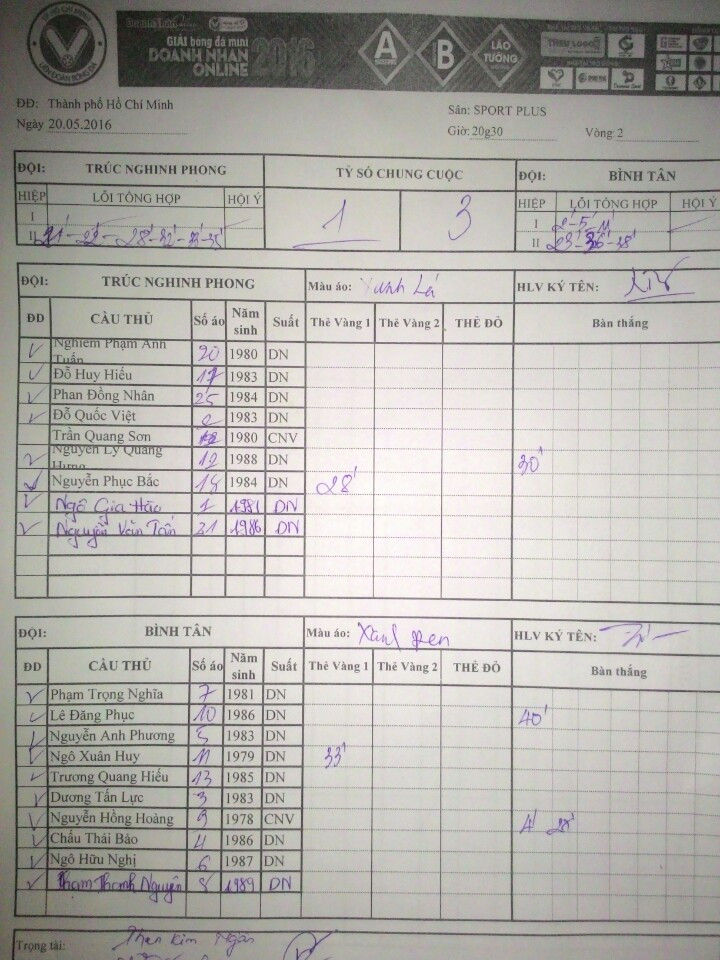 TP HỒ CHÍ MINH
LIÊN ĐOÀN BÓNG ĐÁ
GIẢI bóng đá mini
DOANH NHÂN
ONLINE 2016
A
B
LÃO TƯỚNG
ĐĐ: Thành phố Hồ Chí Minh
Sân: SPORT PLUS
Ngày 20.05.2016
Giờ: 20g30 Vòng: 2
ĐỘI: TRÚC NGHINH PHONG TỶ SỐ CHUNG CUỘC ĐỘI: BÌNH TÂN
HIỆP LỖI TỔNG HỢP HỘI Ý 1 3 HIỆP LỖI TỔNG HỢP HỘI Ý
I I 2'-5'-11'
II 21'-22'-28'-32'-33'-35' II 23'-36'-38'
ĐỘI: TRÚC NGHINH PHONG Màu áo: Xanh Lá HLV KÝ TÊN:
ĐD CẦU THỦ Số áo Năm sinh Suất Thẻ Vàng 1 Thẻ Vàng 2 THẺ ĐỎ Bàn thắng
Nghiêm Phạm Anh Tuấn 20 1980 DN
Đỗ Huy Hiếu 17 1983 DN
Phan Đồng Nhân 25 1984 DN
Đỗ Quốc Việt 2 1983 DN
Trần Quang Sơn 1980 CNV
Nguyễn Lý Quang Hưng 12 1988 DN 30'
Nguyễn Phục Bắc 14 1984 DN 28'
Ngô Gia Hào 1 1981 DN
Nguyễn Văn Tấn 31 1986 DN
ĐỘI: BÌNH TÂN Màu áo: Xanh đen HLV KÝ TÊN:
ĐD CẦU THỦ Số áo Năm sinh Suất Thẻ Vàng 1 Thẻ Vàng 2 THẺ ĐỎ Bàn thắng
Phạm Trọng Nghĩa 7 1981 DN
Lê Đăng Phục 10 1986 DN 40'
Nguyễn Anh Phương 5 1983 DN
Ngô Xuân Huy 11 1979 DN 33'
Trương Quang Hiếu 13 1985 DN
Dương Tấn Lực 3 1983 DN
Nguyễn Hồng Hoàng 9 1978 CNV 4' 28'
Chấu Thái Bảo 4 1986 DN
Ngô Hữu Nghị 6 1987 DN
Phạm Thanh Nguyên 8 1989 DN
Trọng tài: Phan Kim Ngân